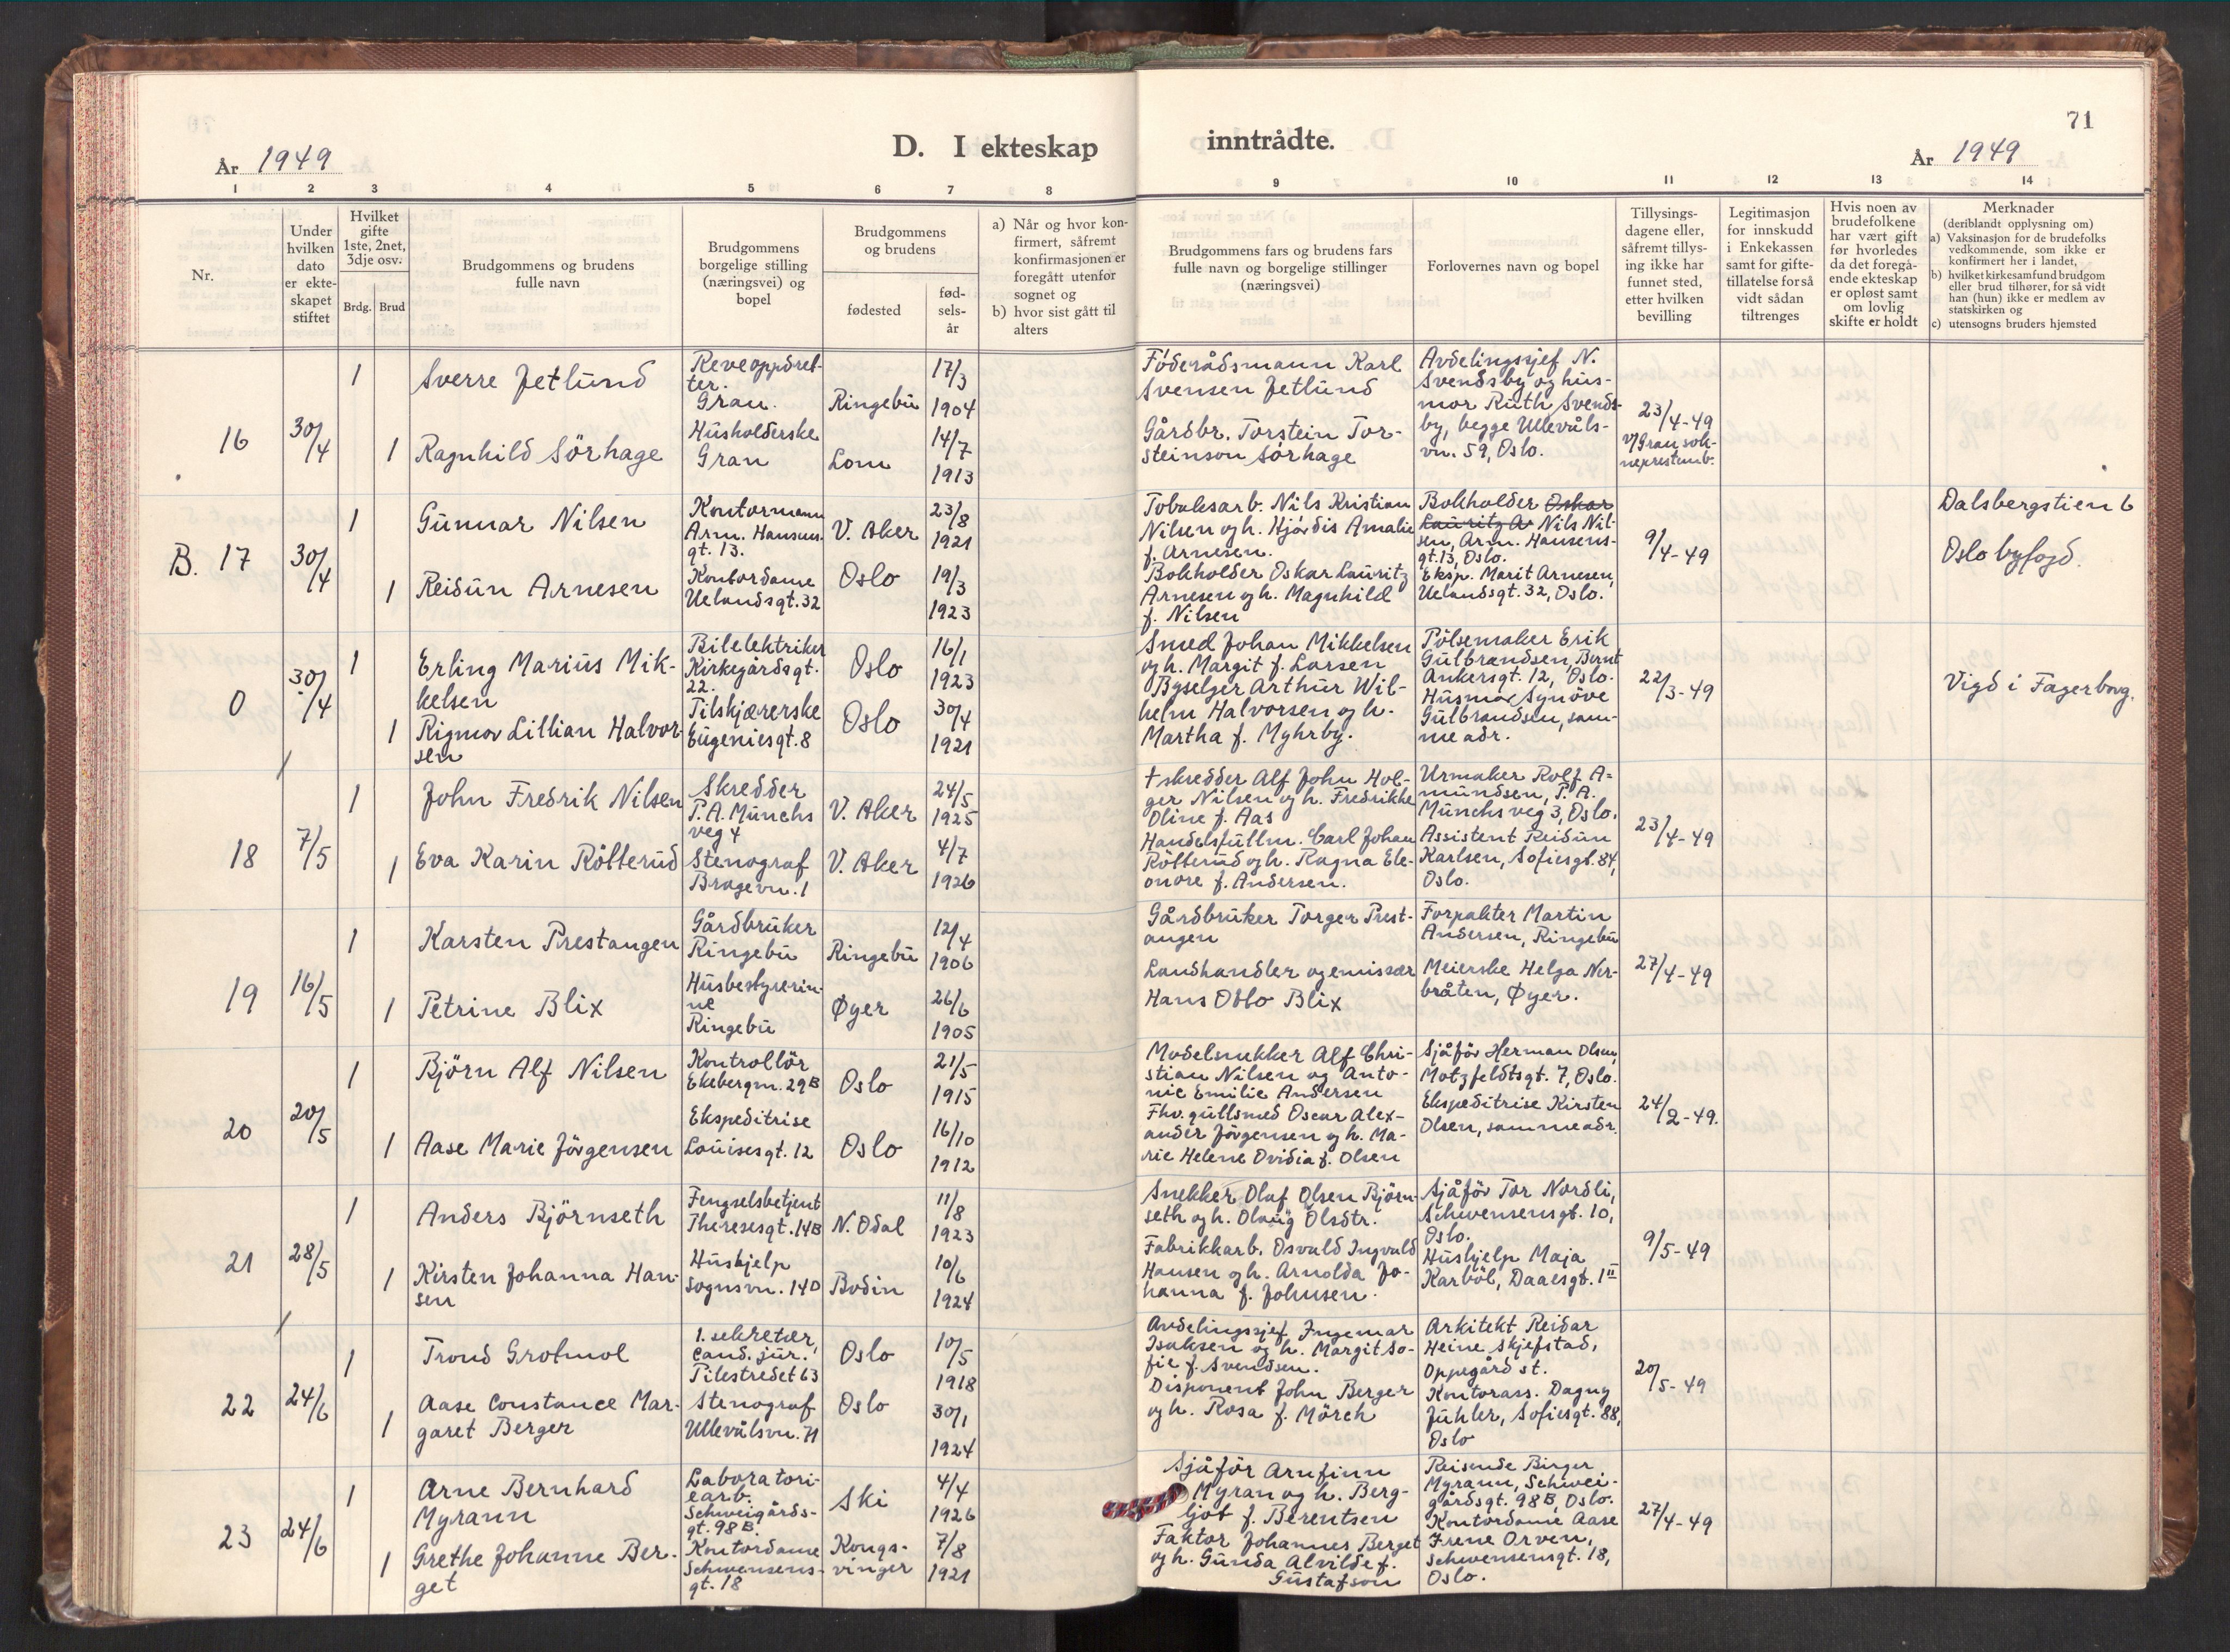 71
D. I ekteskap inntrådte.
År 1949
År 1949
1 2 3 4 5 6 7 8 9 10 11 12 13 14
Nr.
Under hvilken dato er ekteskapet stiftet
Hvilket gifte 1ste, 2net, 3dje osv.
Brdg. Brud
Brudgommens og brudens fulle navn
Brudgommens borgelige stilling (næringsvei) og bopel
Brudgommens og brudens
fødested
fødsels-år
a) Når og hvor konfirmert, såfremt konfirmasjonen er foregått utenfor sognet og
b) hvor sist gått til alters
Brudgommens fars og brudens fars fulle navn og borgelige stillinger (næringsvei)
Forlovernes navn og bopel
Tillysings-dagene eller, såfremt tillysing ikke har funnet sted, etter hvilken bevilling
Legitimasjon for innskudd i Enkekassen samt for giftetillatelse forså vidt sådan tiltrenges
Hvis noen av brudefolkene har vært gift før hvorledes da det foregående ekteskap er opløst samt om lovlig skifte er holdt
Merknader
(deriblandt opplysning om)
a) Vaksinasjon for de brudefolks vedkommende, som ikke er konfirmert her i landet,
b) hvilket kirkesamfund brudgom eller brud tilhører, for så vidt han (hun) ikke er medlem av statskirken og
c) utensogns bruders hjemsted
16
30/4
1
Sverre Jetlund
Reveoppdret-
ter.
Gran.
Ringebu
17/3
1904
1
Ragnhild Sörhage
Husholderske
Gran
Lom
14/7
1913
Föderådsmann Karl
Svensen Jetlund
Gårdbr. Torstein Tor-
steinson Sörhage
Avdelingssjef N.
Svendsby og hus-
mor Ruth Svends-
by, begge Ullevåls-
vn. 59, Oslo.
23/4-49
v/Gran sok-
neprestemb.
B. 17
30/4
1
Gunnar Nilsen
Kontormann
Arn. Hansens
gt. 13.
V. Aker
23/8
1921
1
Reidun Arnesen
Kontordame
Uelandsgt. 32
Oslo
19/3
1923
Tobaksarb. Nils Kristian
Nilsen og h. Hjördis Amalie
f. Arnesen.
Bokholder Oskar Lauritz
Arnesen og h. Magnhild
f. Nilsen
Bokholder Oskar
Lauritz A Nils Nil-
sen, Arn. Hansens-
gt. 13, Oslo.
Eksp. Marit Arnesen,
Uelandsgt. 32, Oslo.
9/4-49
Dalsbergstien 6
Oslo byfogd.
0
30/4
1
Erling Marius Mik-
kelsen
Bilelektriker
Kirkegårdsgt.
22.
Oslo
16/1
1923
1
Rigmor Lillian Halvor-
sen
Tilskjærerske
Eugeniesgt. 8
Oslo
30/4
1921
Smed Johan Mikkelsen
og h. Margit f. Larsen
Byselger Arthur Wil-
helm Halvorsen og h.
Martha f. Myhrby.
Pölsemaker Erik
Gulbrandsen, Bernt
Ankersgt. 12, Oslo.
Husmor Synöve
Gulbrandsen, sam-
me adr.
22/3-49
Vigd i Fagerborg.
18
7/5
1
John Fredrik Nilsen
Skredder
P. A. Munchs
veg 4
V. Aker
24/5
1925
1
Eva Karin Rötterud
Stenograf
Bragevn. 1
V. Aker
4/7
1926
† skredder Alf John Hol-
ger Nilsen og h. Fredrikke
Oline f. Aas
Handelsfullm. Carl Johan
Rötterud og h. Ragna Ele-
onore f. Andersen.
Urmaker Rolf A-
mundsen, P. A.
Munchs veg 3, Oslo.
Assistent Reidun
Karlsen, Sofiesgt. 84,
Oslo.
23/4-49
19
16/5
1
Karsten Prestangen
Gårdbruker
Ringebu
Ringebu
12/4
1906
1
Petrine Blix
Husbestyrerin-
ne
Ringebu
Øyer
26/6
1905
Gårdbruker Torger Prest-
angen
Landhandler og emissær
Hans Otto Blix
Forpakter Martin
Andersen, Ringebu
Meierske Helga Nor-
bråten, Øyer.
27/4-49
20
20/5
1
Björn Alf Nilsen
Kontrollör
Ekebergvn. 29B
Oslo
21/5
1915
1
Aase Marie Jörgensen
Ekspeditrise
Louisesgt. 12
Oslo
16/10
1912
Modelsnekker Alf Chri-
stian Nilsen og Anto-
nie Emilie Andersen
Fhv. gullsmed Oscar Alex-
ander Jörgensen og h. Ma-
rie Helene Ovidia f. Olsen
Sjåför Herman Olsen,
Motzfeldtsgt. 7, Oslo.
Ekspeditrise Kirsten
Olsen, samme adr.
24/2-49.
21
28/5
1
Anders Björnseth
Fengselsbetjent
Theresesgt. 14B
N. Odal
11/8
1923
1
Kirsten Johanna Han-
sen
Hushjelp
Sognsvn. 14D
Bodin
10/6
1924
Snekker Olaf Olsen Björn-
seth og h. Olaug Olsdtr.
Fabrikkarb. Osvald Ingvald
Hansen og h. Arnolda Jo-
hanna f. Johnsen.
Sjåför Tor Nordli,
Schwensensgt. 10,
Oslo.
Hushjelp Maja
Karböl, Daaesgt. 1 II
9/5-49
22
24/6
1
Trond Grotmol
1. sekretær,
cand. jur.
Pilestredet 63
Oslo
10/5
1918
1
Aase Constance Mar-
garet Berger
Stenograf
Ullevålsvn. 71
Oslo
30/1
1924
Avdelingssjef Ingemar
Isaksen og h. Margit So-
fie f. Svendsen.
Disponent John Berger
og h. Rosa f. Mörch
Arkitekt Reidar
Heine Skjefstad,
Oppegård st.
Kontorass. Dagny
Juhler, Sofiesgt. 88,
Oslo
20/5-49
23
24/6
1
Arne Bernhard
Myrann
Laboratori-
earb.
Schweigårds-
gt. 98B.
Ski
4/4
1926
1
Grethe Johanne Ber-
get
Kontordame
Schwensens-
gt. 18
Kongs-
vinger
7/8
1921
Sjåför Arnfinn
Myran og h. Berg-
ljot f. Berentsen
Faktor Johannes Berget
og h. Gunda Alvilde f.
Gustafson
Reisende Birger
Myrann, Schwei-
gårdsgt. 98B, Oslo.
Kontordame Aase
Irene Orven,
Schwensensgt. 18,
Oslo.
27/4-49